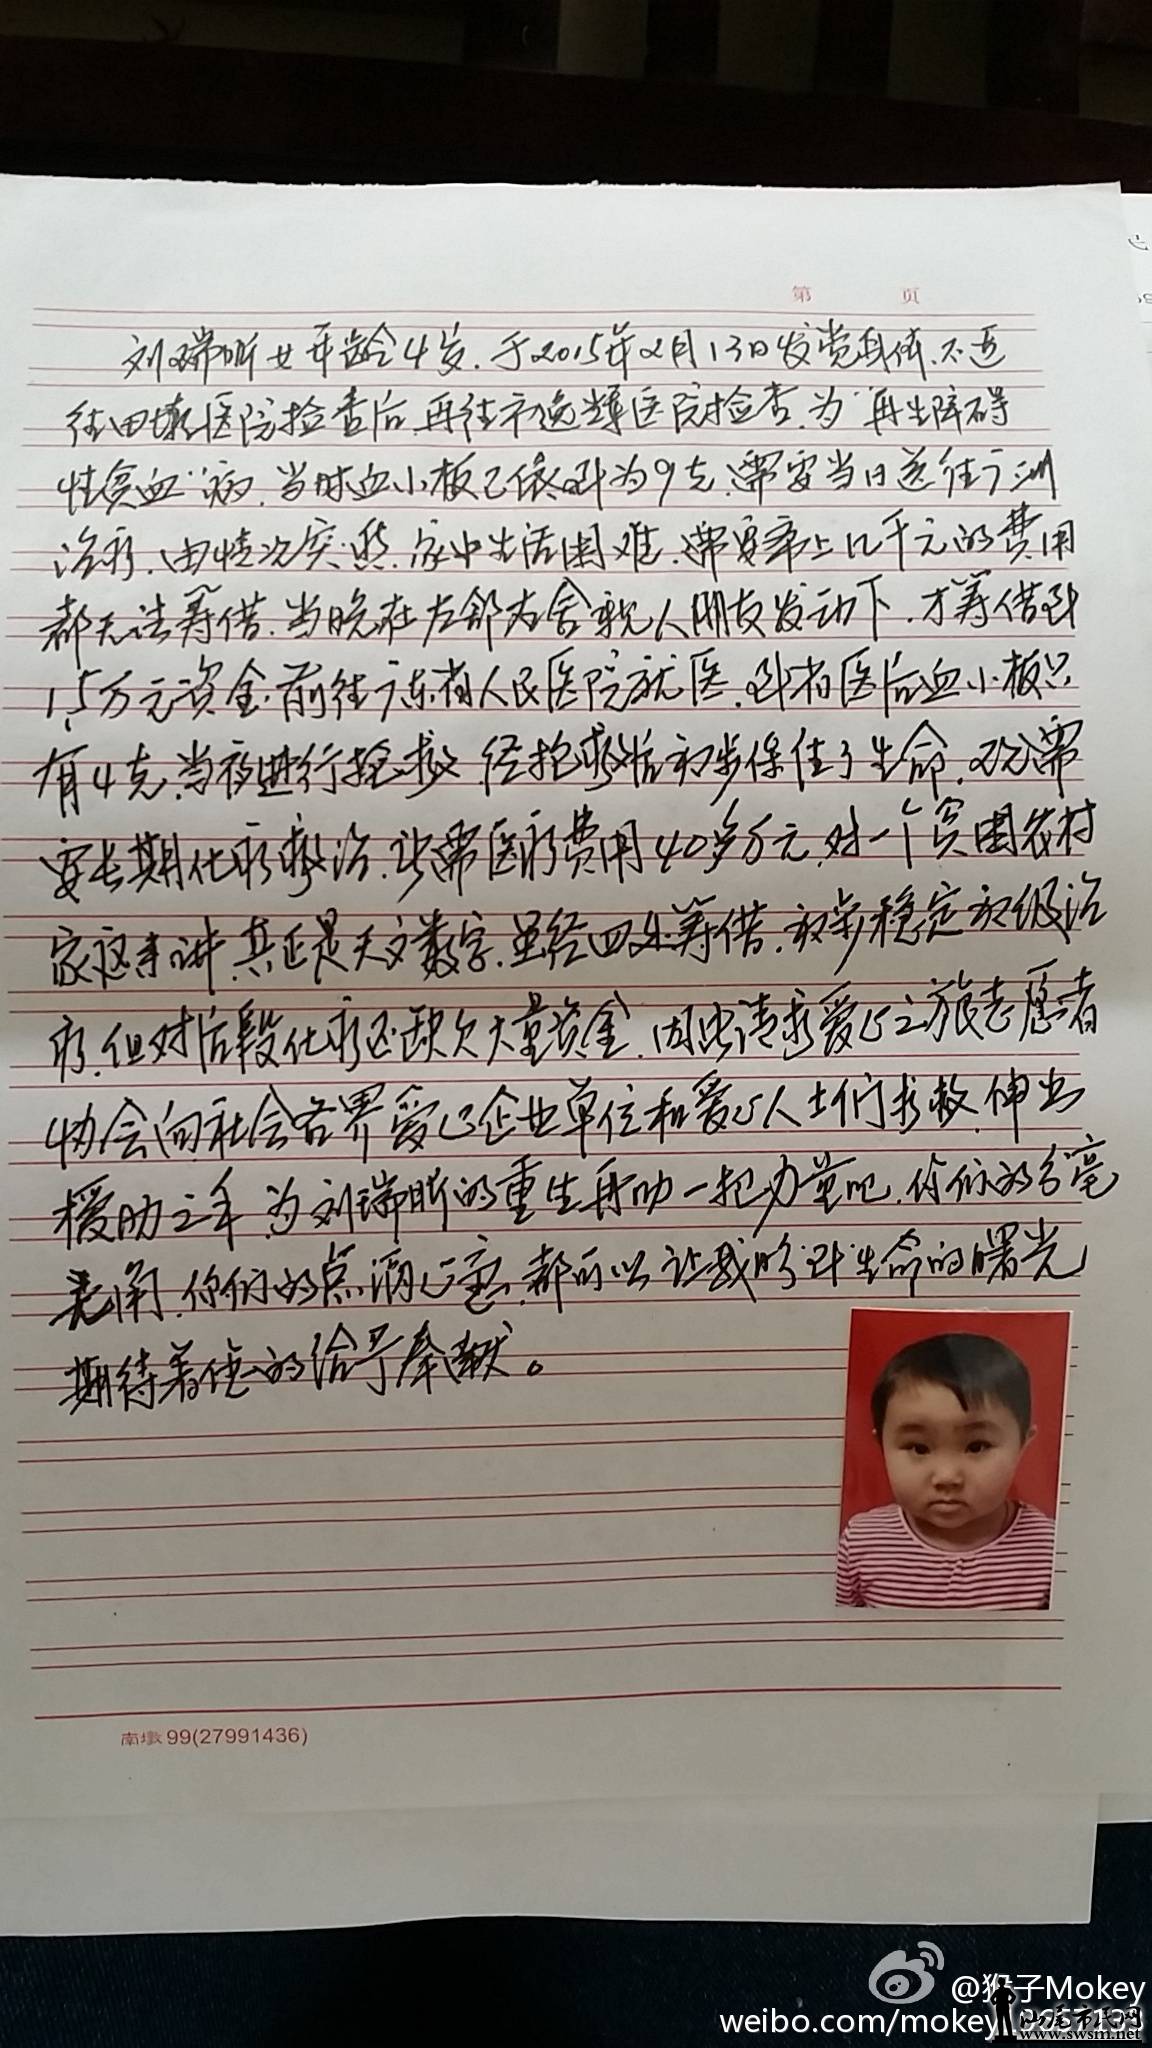 第 页
刘瑞昕女年龄4岁.于2015年2月13日发觉身体.不适
往田墘医院检查后.再往市逸挥医院检查.为"再生障碍
性贫血"病.当时血小板已降到为9克.需要当日送往广州
治疗.由情况突然.家中生活困难.需要车上几千元的费用
都无法筹借.当晚在左邻右舍亲人朋友发动下.才筹借到
1.5万元资金.前往广东省人民医院就医.到省医后血小板只
有4克.当夜进行抢救 经抢救后初步保住了生命.现需
要长期化疗救治.共需医疗费用40多万元.对一个贫困农村
家庭来讲.真正是天文数字.虽经四处筹借.初步稳定初级治
疗.但对后段化疗还缺欠大量资金.因此请求爱心之旅志愿者
协会向社会各界爱心企业单位和爱心人士们求救.伸出
援助之手.为刘瑞昕的重生再助一把力量吧.你们的分毫
.你们的点滴心意.都可以让我盼到生命的曙光
期待着您的给予奉献。
南墩 99(27991436)
@猴子Mokey
weibo.com/mokey
汕尾市民网
www.swsm.net